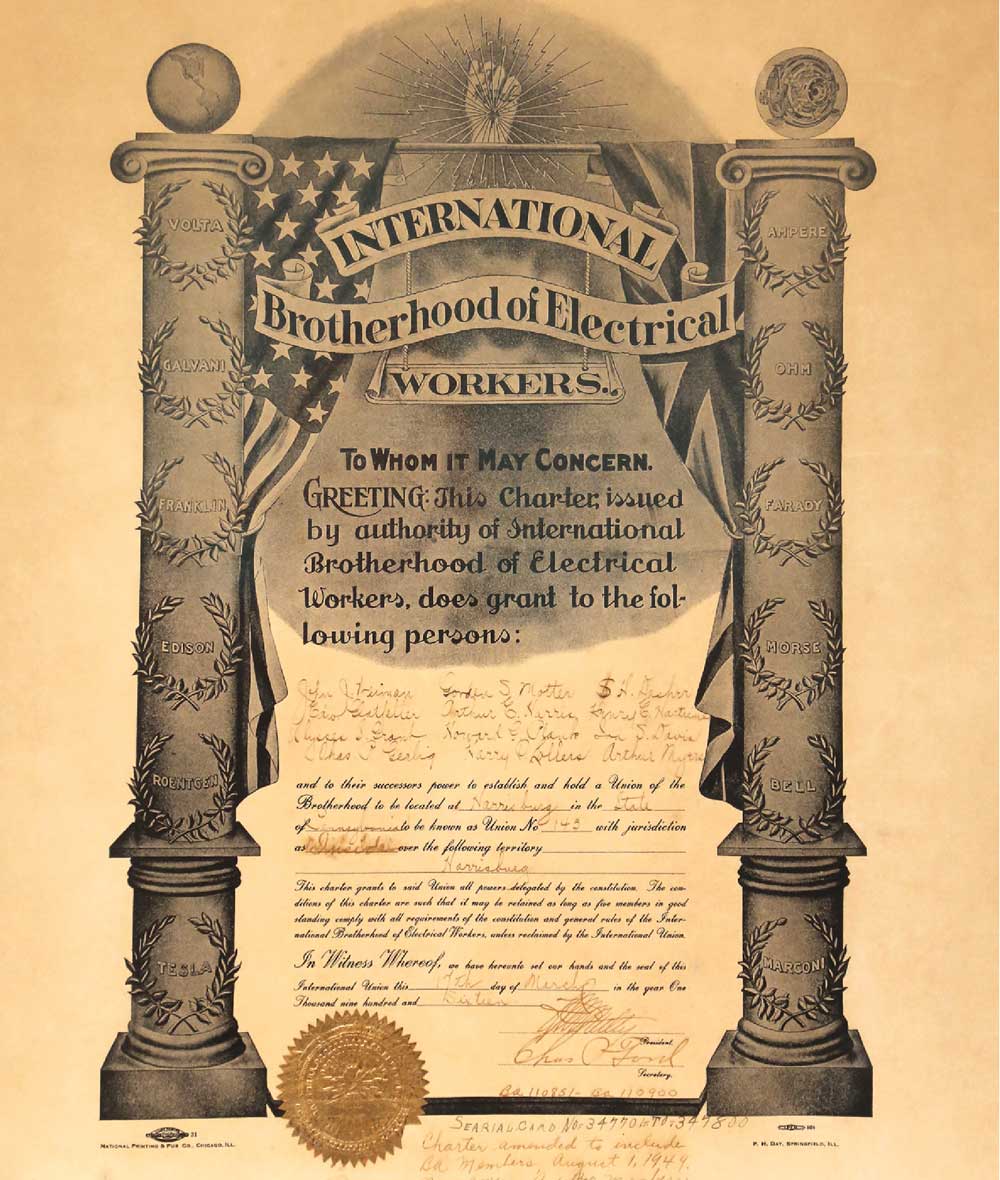 INTERNATIONAL
Brotherhood of Electrical
WORKERS.
VOLTA
GALVANI
FRANKLIN
EDISON
ROENTGEN
TESLA
AMPERE
OHM
FARADY
MORSE
BELL
MARCONI
TO WHOM IT MAY CONCERN.
GREETING: This Charter, issued
by authority of International
Brotherhood of Electrical
Workers, does grant to the fol-
lowing persons:
Gordon S. Motter
Arthur C.
Ulysses S. Grant Howard Ira S. Davis
Chas. C. Gerlig Harry Arthur Myers
and to their successors power to establish and hold a Union of the
Brotherhood to be located at Harrisburg in the State
of Pennsylvania to be known as Union No 143 with jurisdiction
as over the following territory
Harrisburg
This charter grants to said Union all powers delegated by the constitution. The con-
ditions of this charter are such that it may be retained as long as five members in good
standing comply with all requirements of the constitution and general rules of the Inter-
national Brotherhood of Electrical Workers, unless reclaimed by the International Union.
In Witness Whereof, we have hereunto set our hands and the seal of this
International Union this 17th day of March in the year One
Thousand nine hundred and Sixteen
President.
Chas P Ford
Secretary.
Ba 110851- Ba 110900
SEARIAL CARD NOS 347701 TO 347800
Charter amended to include
Ba Members, August 1, 1949.
31
NATIONAL PRINTING & PUB CO., CHICAGO, ILL.
P. H. DAY, SPRINGFIELD, ILL.